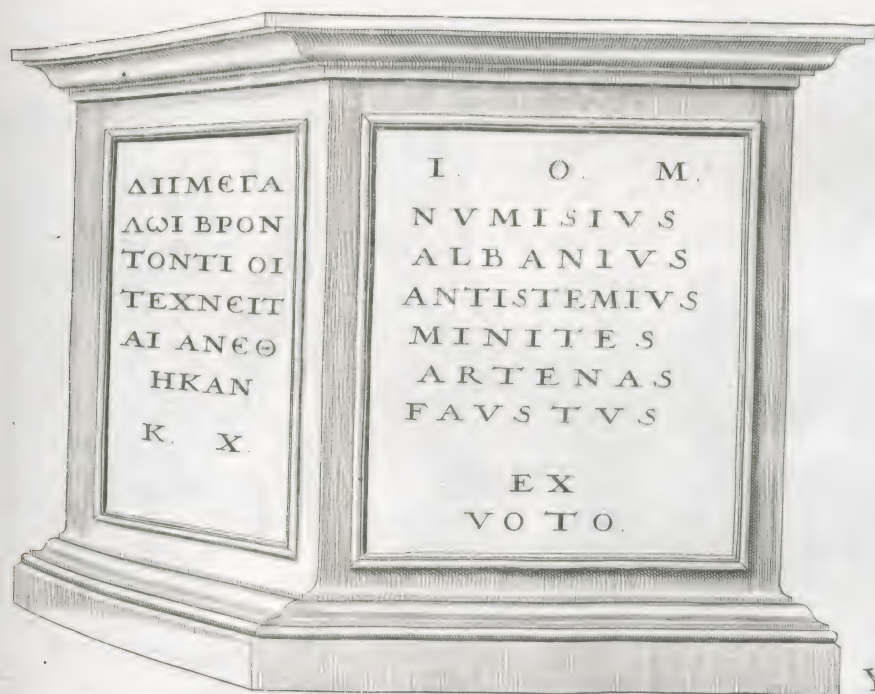 ΔΙΙΜЄΓΑ
ΛѠΙ ΒΡΟΝ
ΤΟΝΤΙ ΟΙ
ΤΕΧΝЄΙΤ
ΑΙ ΑΝЄΘ
ΗΚΑΝ
Κ. Χ.
I. O. M.
NVMISIVS
ALBANIVS
ANTISTEMIVS
MINITES
ARTENAS
FAVSTVS
EX
VOTO.